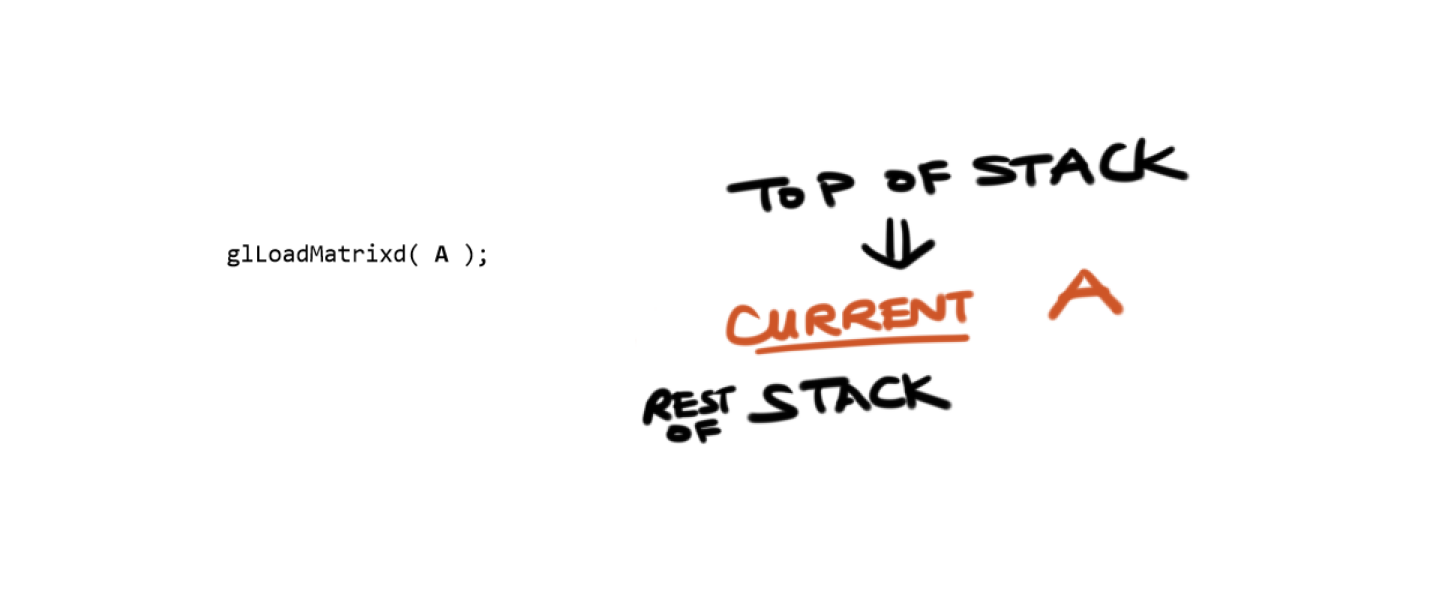 glLoadMatrixd( A );
TOP OF STACK
CURRENT A
REST OF STACK